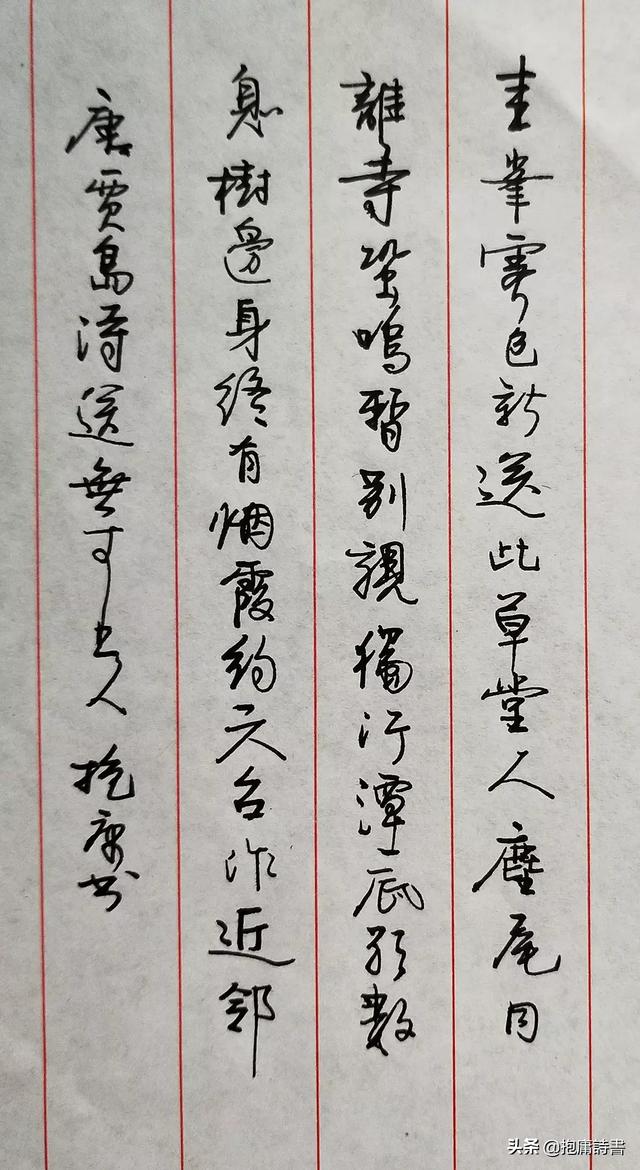 圭峯霽色新送此草堂人麈尾同
離寺蛩鳴暫別親獨行潭底影數
息樹邊身終有烟霞約天台作近鄰
唐賈島詩送無可上人 抱庸书
头条 @抱庸詩書